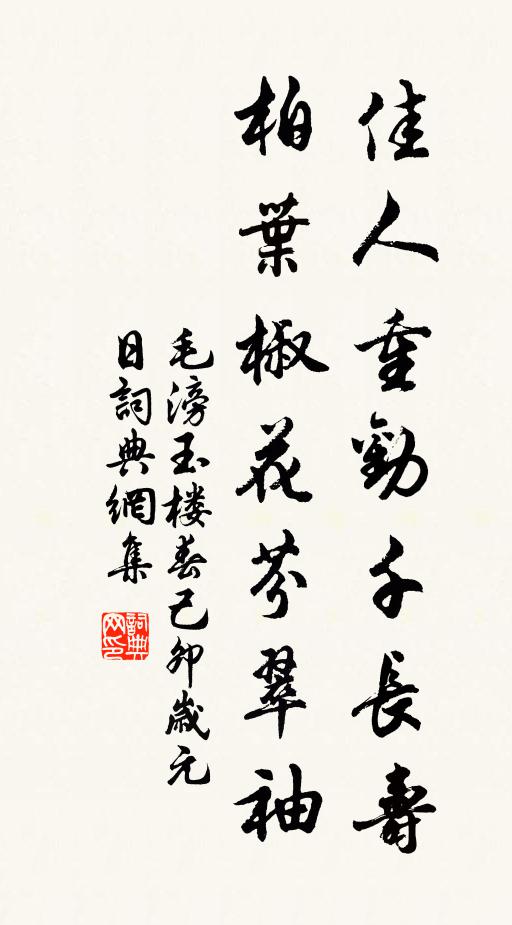 佳人重勸千長壽
柏葉椒花芬翠袖
毛滂玉楼春己卯歲元
日詞典網集
詞典网印